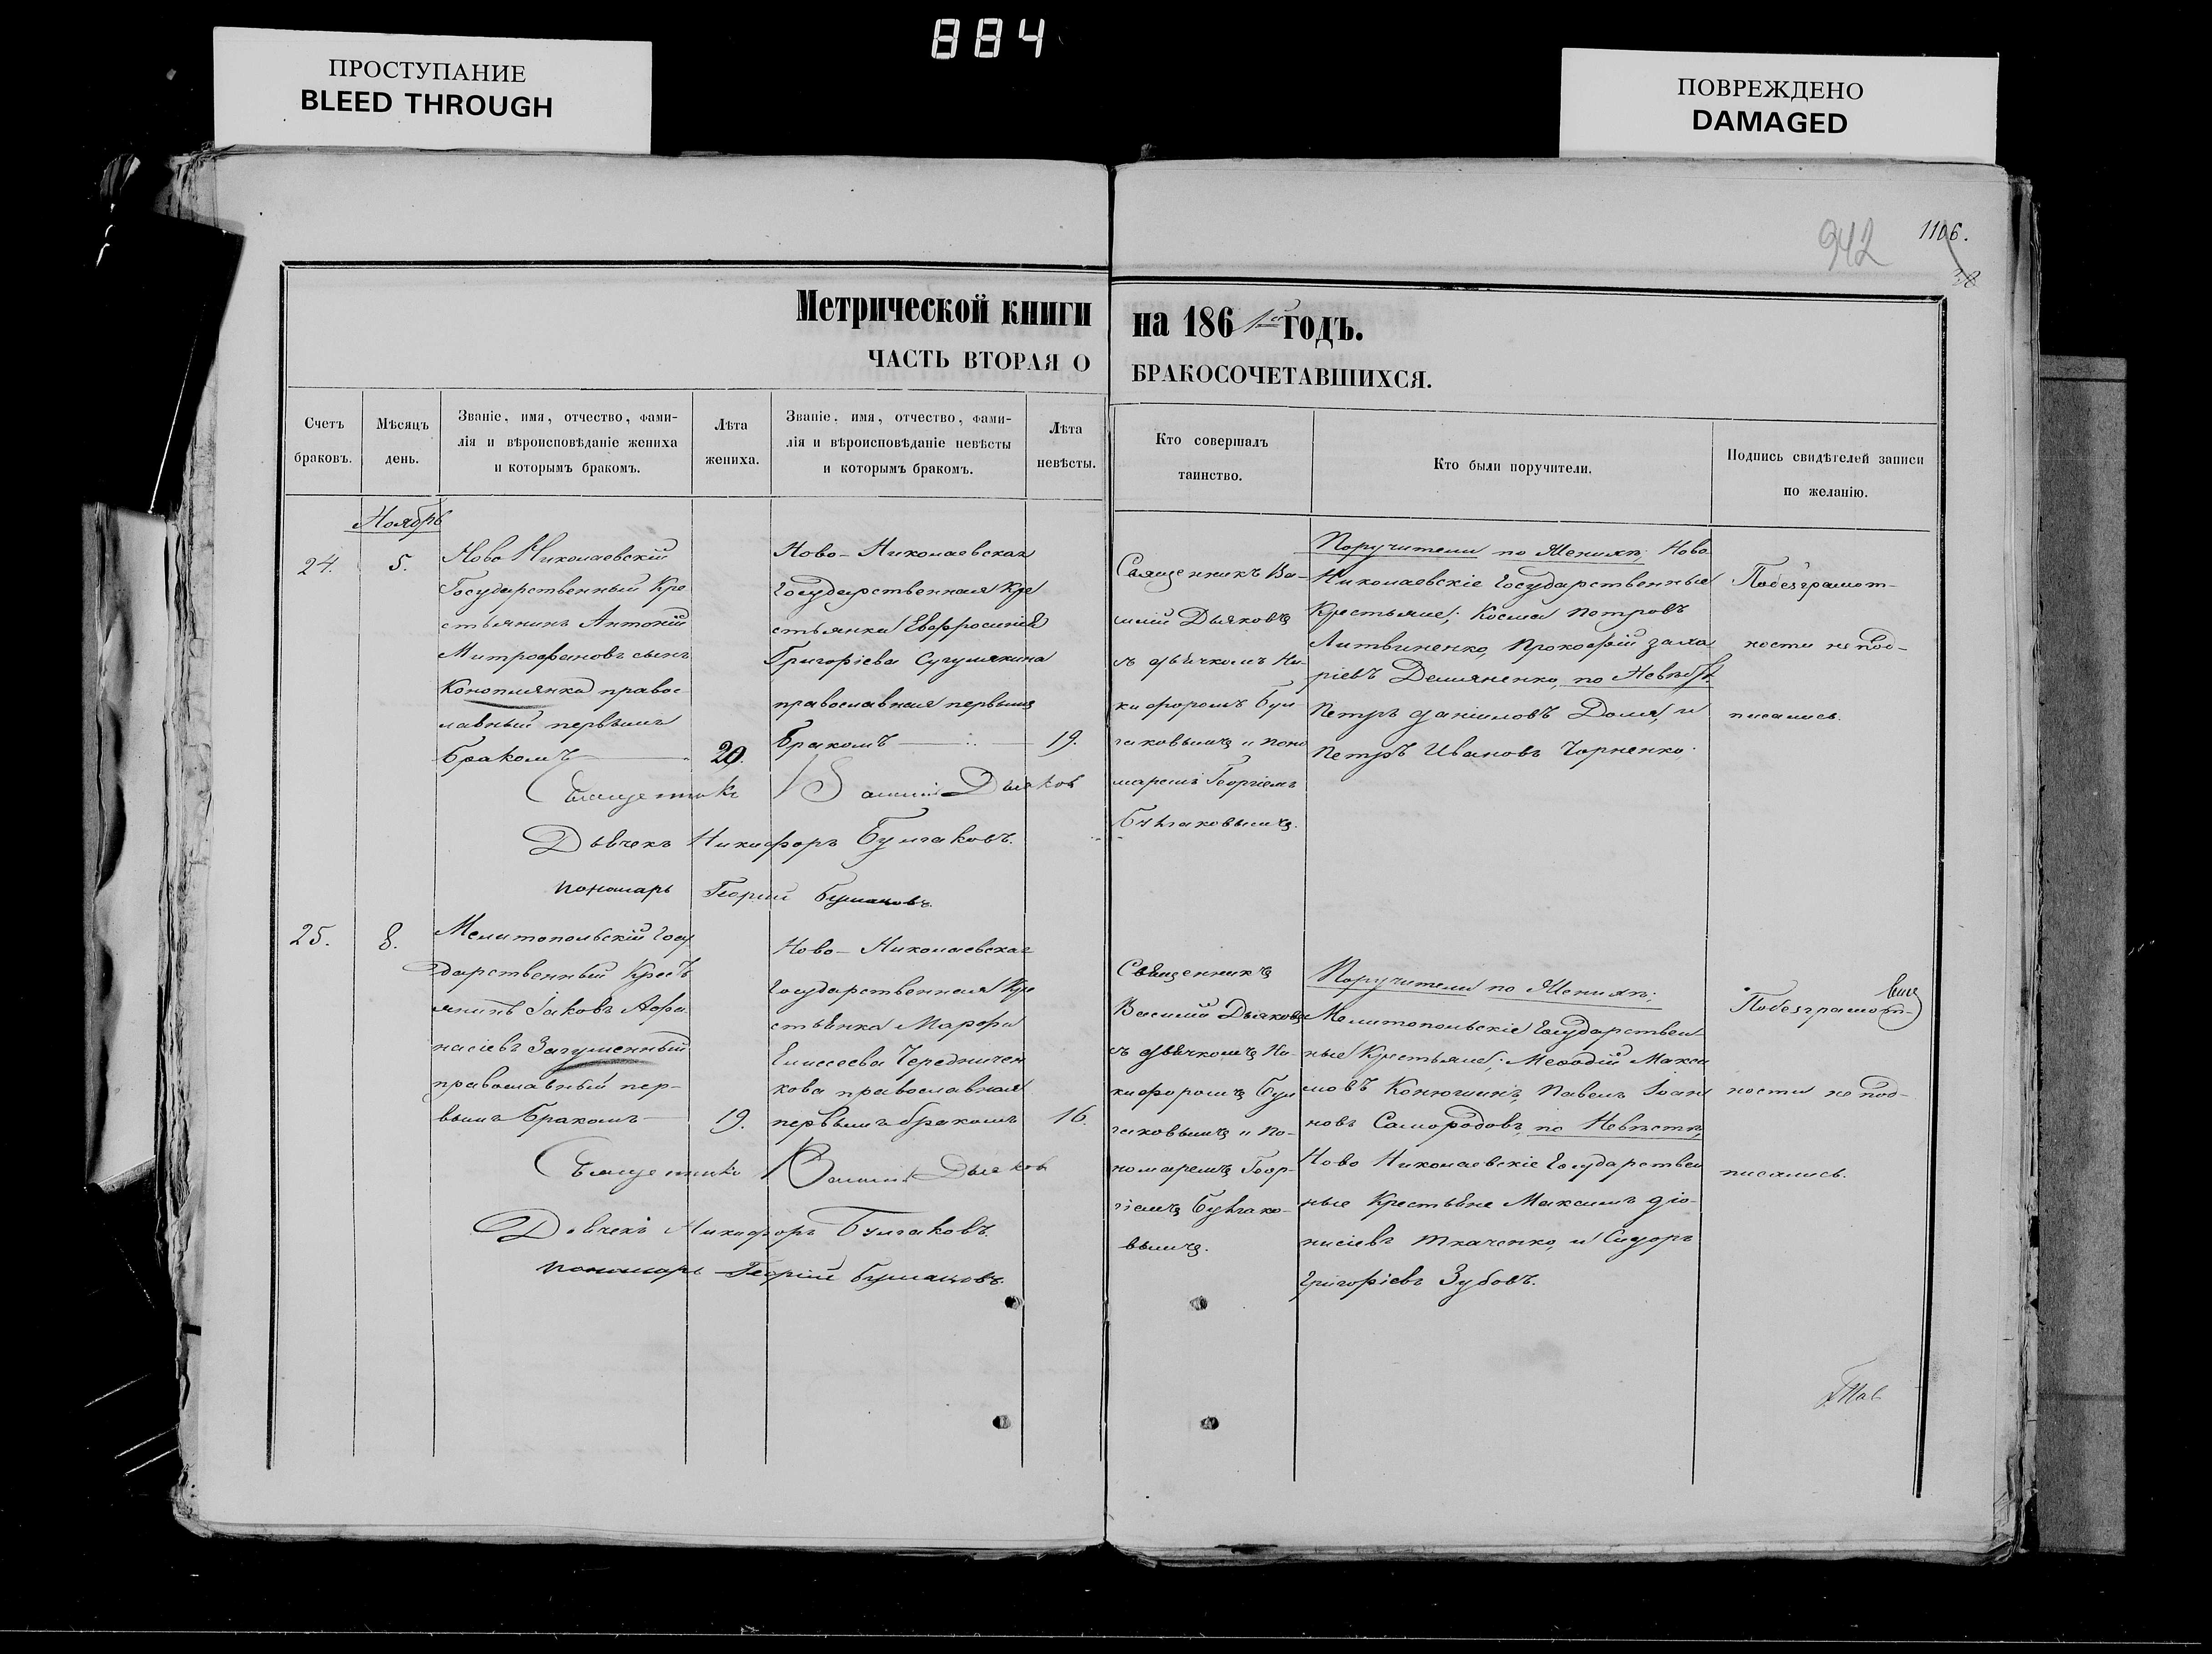 884
ПРОСТУПАНИЕ
BLEED THROUGH
ПОВРЕЖДЕНО
DAMAGED
942
1106.
38
Метрической книги на 186 1го годъ.
ЧАСТЬ ВТОРАЯ О БРАКОСОЧЕТАВШИХСЯ.
Счетъ
браковъ.
Мѣсяцъ
день.
Званіе, имя, отчество, фами-
лія и вѣроисповѣданіе жениха
и которымъ бракомъ.
Лѣта
жениха.
Званіе, имя, отчество, фами-
лія и вѣроисповѣданіе невѣсты
и которымъ бракомъ.
Лѣта
невѣсты.
Кто совершалъ
таинство.
Кто были поручители.
Подпись свидѣтелей записи
по желанію.
Ноябрь
24.
5.
Ново Николаевскій
Государственный Кре
стьянинъ Антоній
Митрофановъ сынъ
Коноплянка правос
лавный первымъ
бракомъ
20.
Ново-Николаевская
Государственная Кре
стьянка Евфросинія
Григоріева Сугулякина
православная первымъ
бракомъ
19.
Священникъ Ва-
силій Дьяковъ
съ дьячкомъ Ни-
кифоромъ Бул
гаковымъ и поно
маремъ Георгіемъ
Булгаковымъ.
Поручители по Женихѣ; Ново
Николаевскіе Государственные
Крестьяне; Косма Петровъ
Литвиненко, Прокофій Заха
ріевъ Демяненко, по Невѣстѣ
Петръ Даниловъ Доля, и
Петръ Ивановъ Чорненко.
Побезграмот-
ности не под-
писались.
Священникъ Василій Дьяков
Дьячекъ Никифоръ Булгаковъ.
пономарь Георгій Булгаковъ.
25.
8.
Мелитопольскій Госу
дарственный Кресть
янинъ Іаковъ Афа
насіевъ Загуменный
православный пер-
вымъ бракомъ
19.
Ново-Николаевская
Государственная Кре
стьянка Марфа
Елисеева Чередничен
кова православная
первымъ бракомъ
16.
Священникъ
Василій Дьяковъ
съ дьячкомъ Ни-
кифоромъ Бул
гаковымъ и По-
номаремъ Геор-
гіемъ Булгако-
вымъ.
Поручители по Женихѣ;
Мелитопольскіе Государствен
ные Крестьяне; Мефодій Макси
мовъ Конюшинъ, Павелъ Іоан
новъ Самородовъ, по Невѣстѣ,
Ново Николаевскіе Государствен
ные Крестьяне Максимъ Діо-
нисіевъ Ткаченко, и Сидоръ
Григоріевъ Зубовъ.
Побезграмот-
ности не под-
писались.
Священникъ Василій Дьяков
Дьячекъ Никифоръ Булгаковъ.
пономарь Георгій Булгаковъ.